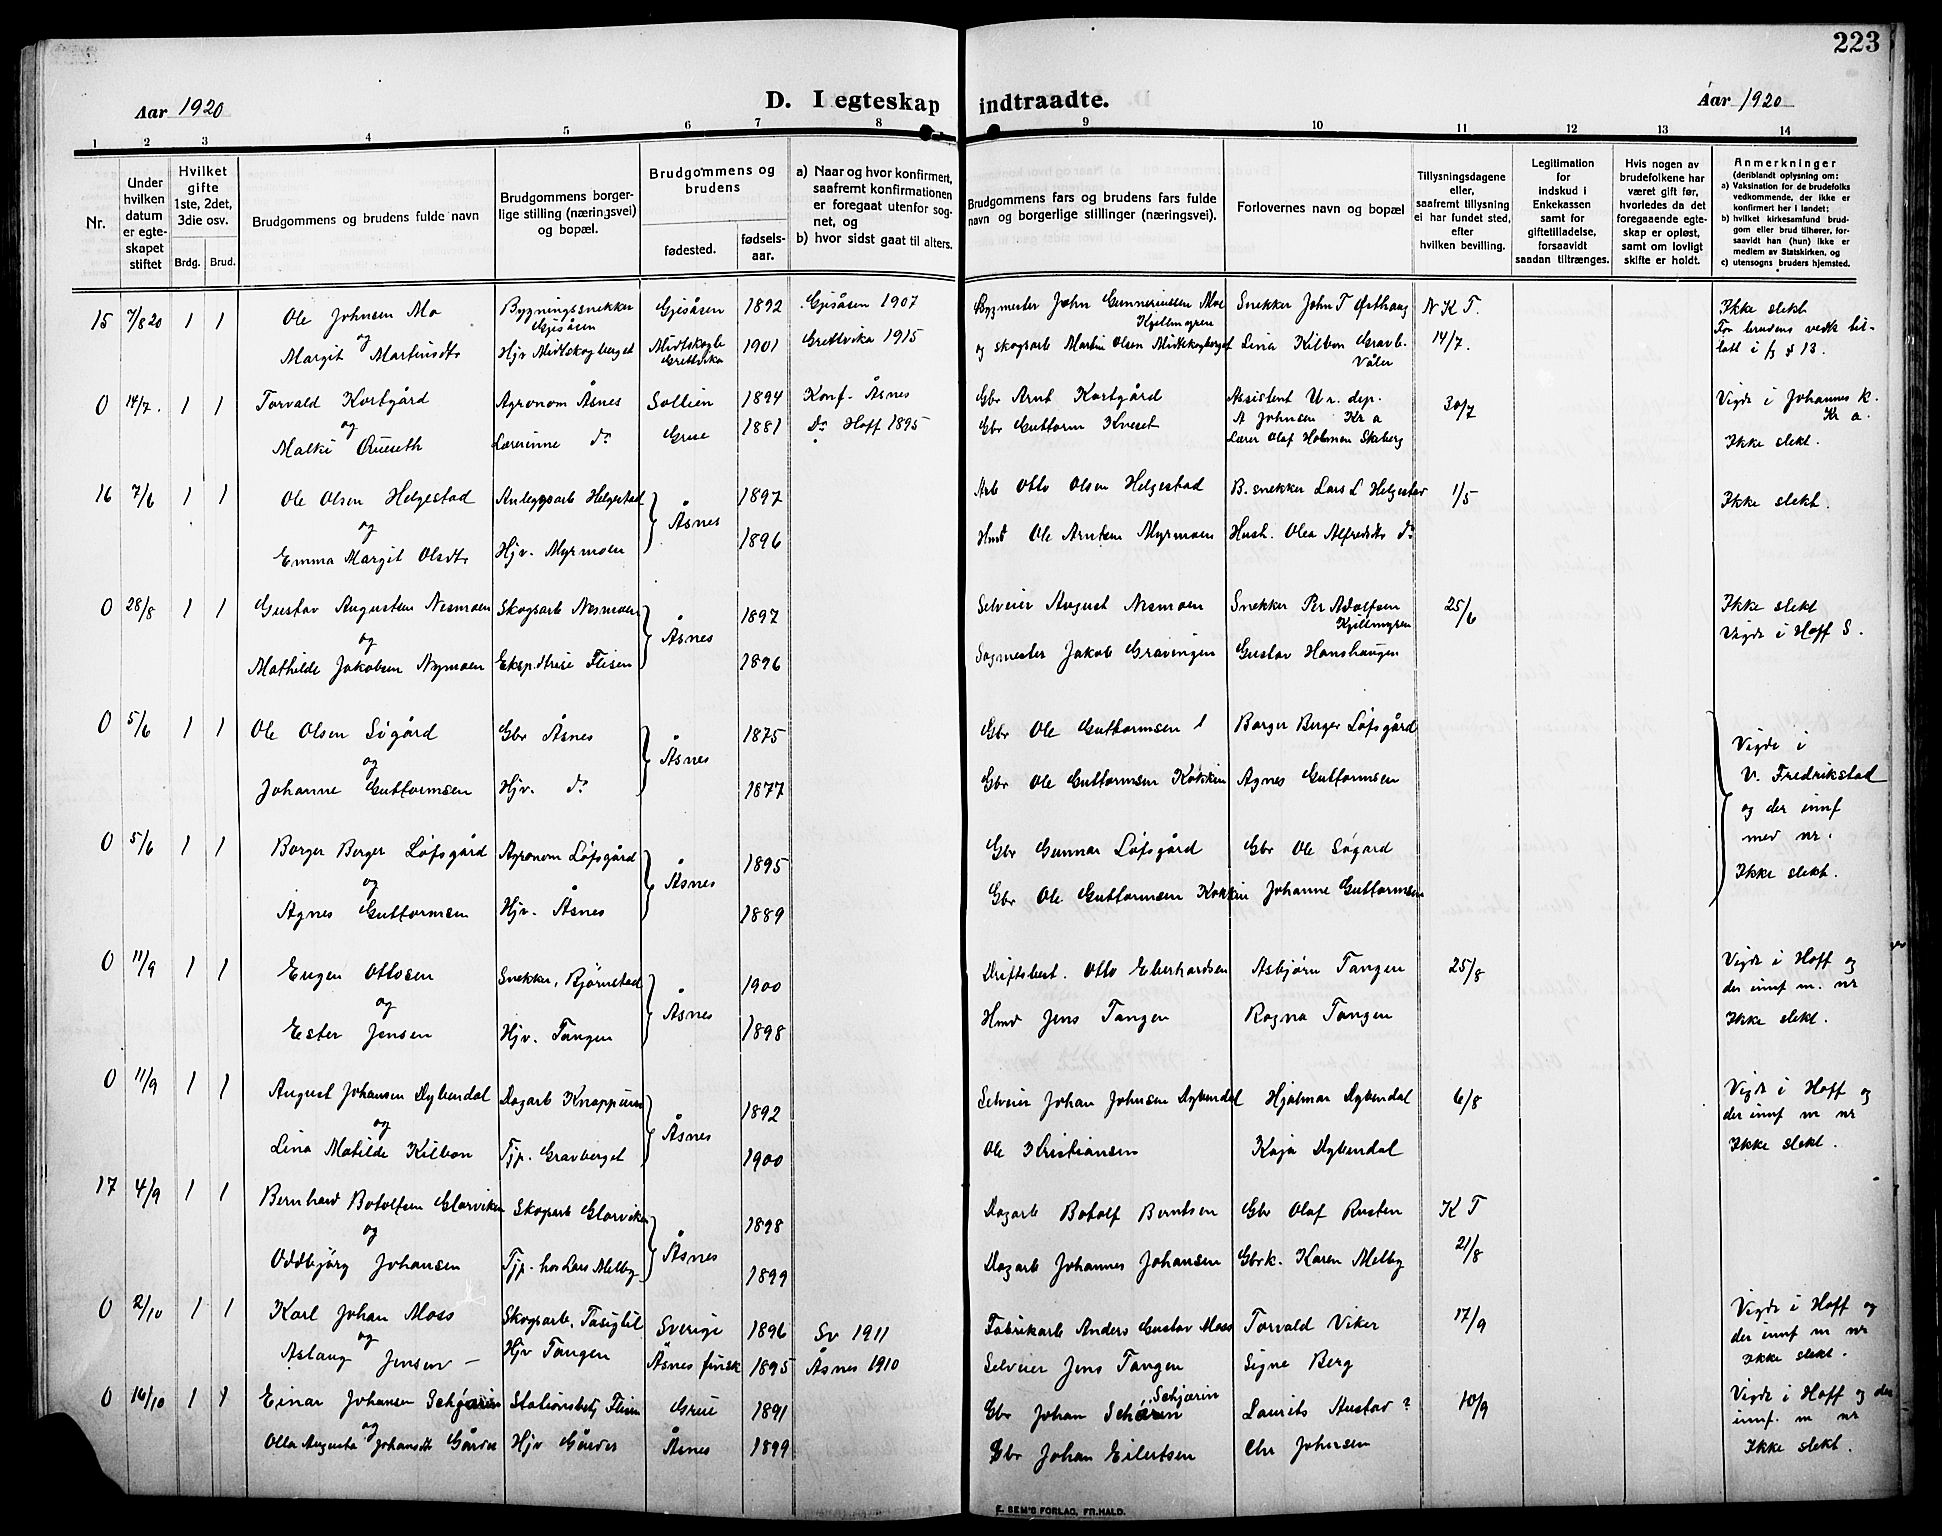 223
Aar 1920
D. I egteskap indtraadte.
Aar 1920
1 2 3 4 5 6 7 8 9 10 11 12 13 14
Nr.
Under hvilken datum er egteskapet stiftet
Hvilket gifte 1ste, 2det, 3die osv.
Brdg. Brud.
Brudgommens og brudens fulde navn
Brudgommens borgerlige stilling (næringsvei) og bopæl.
Brudgommens og brudens
fødested. fødselsaar.
a) Naar og hvor konfirmert, saafremt konfirmationen er foregaat utenfor sognet, og
b) hvor sidst gaat til alters.
Brudgommens fars og brudens fars fulde navn og borgerlige stillinger (næringsvei).
Forlovernes navn og bopæl
Tillysningsdagene eller, saafremt tillysning ei har fundet sted, efter hvilken bevilling.
Legitimation for indskud i Enkekassen samt for giftetilladelse, forsaavidt saadan tiltrænges.
Hvis nogen av brudefolkene har været gift før, hvorledes da det foregaaende egteskap er opløst, samt om lovligt skifte er holdt.
Anmerkninger (deriblandt oplysning om:
a) Vaksination for de brudefolks vedkommende, der ikke er konfirmert her i landet;
b) hvilket kirkesamfund brudgom eller brud tilhører, forsaavidt han (hun) ikke er medlem av Statskirken, og
c) utensogns bruders hjemsted.
15 7/8 20 1 1 Ole Johnsen Mo Bygningssnekker Gjesåsen Gjesåsen 1892 Gjesåsen 1907 Bygmester John Gunneriusen Moe Kjellmyren Snekker John T Østhaug N K T. Ikke slekt
og
Margit Martinsdtr Hjv Midtskogberget Midtskogb Grettvika 1901 Grettvika 1915 og skogsarb Martin Olsen Midtskogberget Lina Kilbon Gravb. Våler 14/7. For brudens vedk tillatt i flg § 13.
0 14/7. 1 1 Torvald Kortgård Agronom Åsnes Sollien 1894 Konf. Åsnes Gbr Arnt Kortgård Assistent U r. dep. A Johnsen Kr a 30/7 Vigde i Johannes k. Kr a.
og
Malki Lærerinne do Grue 1881 Do Hoff 1895 Gbr Guttorm Lærer Olaf Holmen Skiberg Ikke slekt.
16 7/6 1 1 Ole Olsen Helgestad Anleggsarb Helgestad Åsnes 1897 Arb Otto Olsen Helgestad B. snekker Lars L Helgestad 1/5 Ikke slekt.
og
Emma Margit Olsdtr Hjv. Myrmoen 1896 Hmd Ole Arntsen Myrmoen Hush. Olea Alfredsdtr do
0 28/8 1 1 Gustav Augustsen Nesmoen Skogsarb Nesmoen Åsnes 1897 Selveier August Nesmoen Snekker Per Adolfsen Kjellmyren 25/6 Ikke slekt
og
Mathilde Jakobsen Nymoen Eksp.dtrise Flisen 1896 Sagmester Jakob Gravingen Gustav Hanshaugen Vigde i Hoff S.
0 5/6 1 1 Ole Olsen Søgård Gbr Åsnes Åsnes 1875 Gbr Ole Guttormsen Borger Berger Løfsgård Vigde i V. Fredrikstad og der innf med nr. Ikke slekt.
og
Johanne Guttormsen Hjv. do 1877 Gbr Ole Guttormsen Kokkin Agnes Guttormsen
0 5/6 1 1 Borger Berger Løfsgård Agronom Løfsgård Åsnes 1895 Gbr Gunnar Løfsgård Gbr Ole Søgård
og
Agnes Guttormsen Hjv. Åsnes 1889 Gbr Ole Guttormsen Kokkin Johanne Guttormsen
0 11/9 1 1 Eugen Ottosen Snekker, Bjørnstad Åsnes 1900 Driftsbest. Otto Eberhardsen Asbjørn Tangen 25/8 Vigde i Hoff og der innf m. nr
og
Ester Jensen Hjv. Tangen 1898 Hmd Jens Tangen Ragna Tangen Ikke slekt.
0 11/9 1 1 August Johansen Dybendal Dagarb Knappum Åsnes 1892 Selveier Johan Johnsen Dybendal Hjalmar Dybendal 6/8 Vigde i Hoff og der innf m nr
og
Lina Matilde Kilbon Tjp. Gravberget 1900 Ole Kristiansen Kaja Dybendal Ikke slekt.
17 4/9 1 1 Bernhard Botolfsen Glorviken Skogsarb Glorviken Åsnes 1898 Dagarb Botolf Berntsen Gbr Olaf Rusten K T
og
Oddbjørg Johansen Tjp. hos Lars Melby 1899 Dagarb Johannes Johansen Gbrk. Karen Melby 21/8
0 2/10 1 1 Karl Johan Moss Skogsarb. Tasigtil Sverige 1896 Sv 1911 Fabrikarb Anders Gustav Moss Torvald Viker 17/9 Vigde i Hoff og der innf m nr
og
Aslaug Jensen – Hjv Tangen Åsnes finsk 1895 Åsnes 1910 Selveier Jens Tangen Signe Berg Ikke slekt.
0 16/10 1 1 Einar Johansen Schjærin Stationsbetj Flisen Grue 1891 Gbr Johan Schjærin Laurits Austad ? 10/9 Vigde i Hoff og der innf. m nr
og
Olla Augusta Johansdtr Gårder Hjv Gårder Åsnes 1899 Gbr Johan Eilertsen Chr Johnsen Ikke slekt.
E. SEM'S FORLAG, FR.HALD.